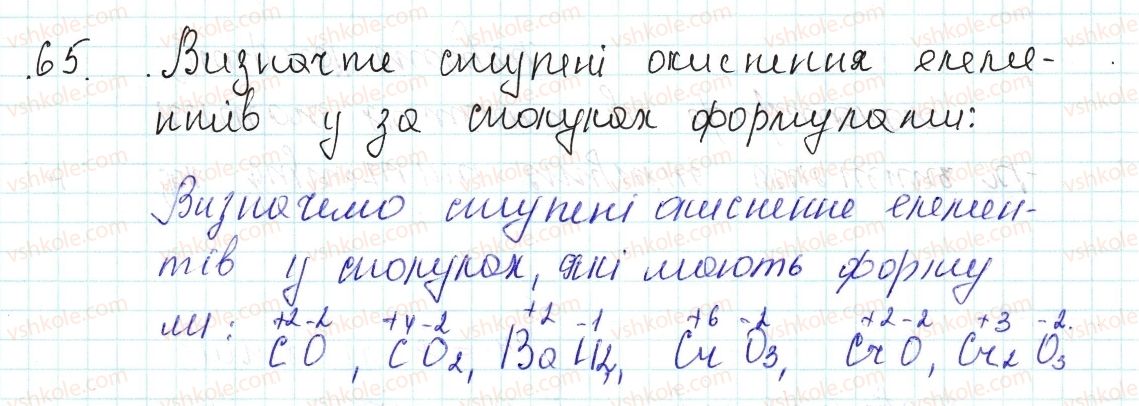 65. Визначте ступені окиснення елеме-
нтів у за сполуках формулами:
Визначемо ступені окиснення елемен-
тів у сполуках, які мають форму
ли: +2 -2 +4 -2 +2 -1 +6 -2 +2 -2 +3 -2.
CO, CO2, Ba Cl2, Cr O3, CrO, Cr2 O3